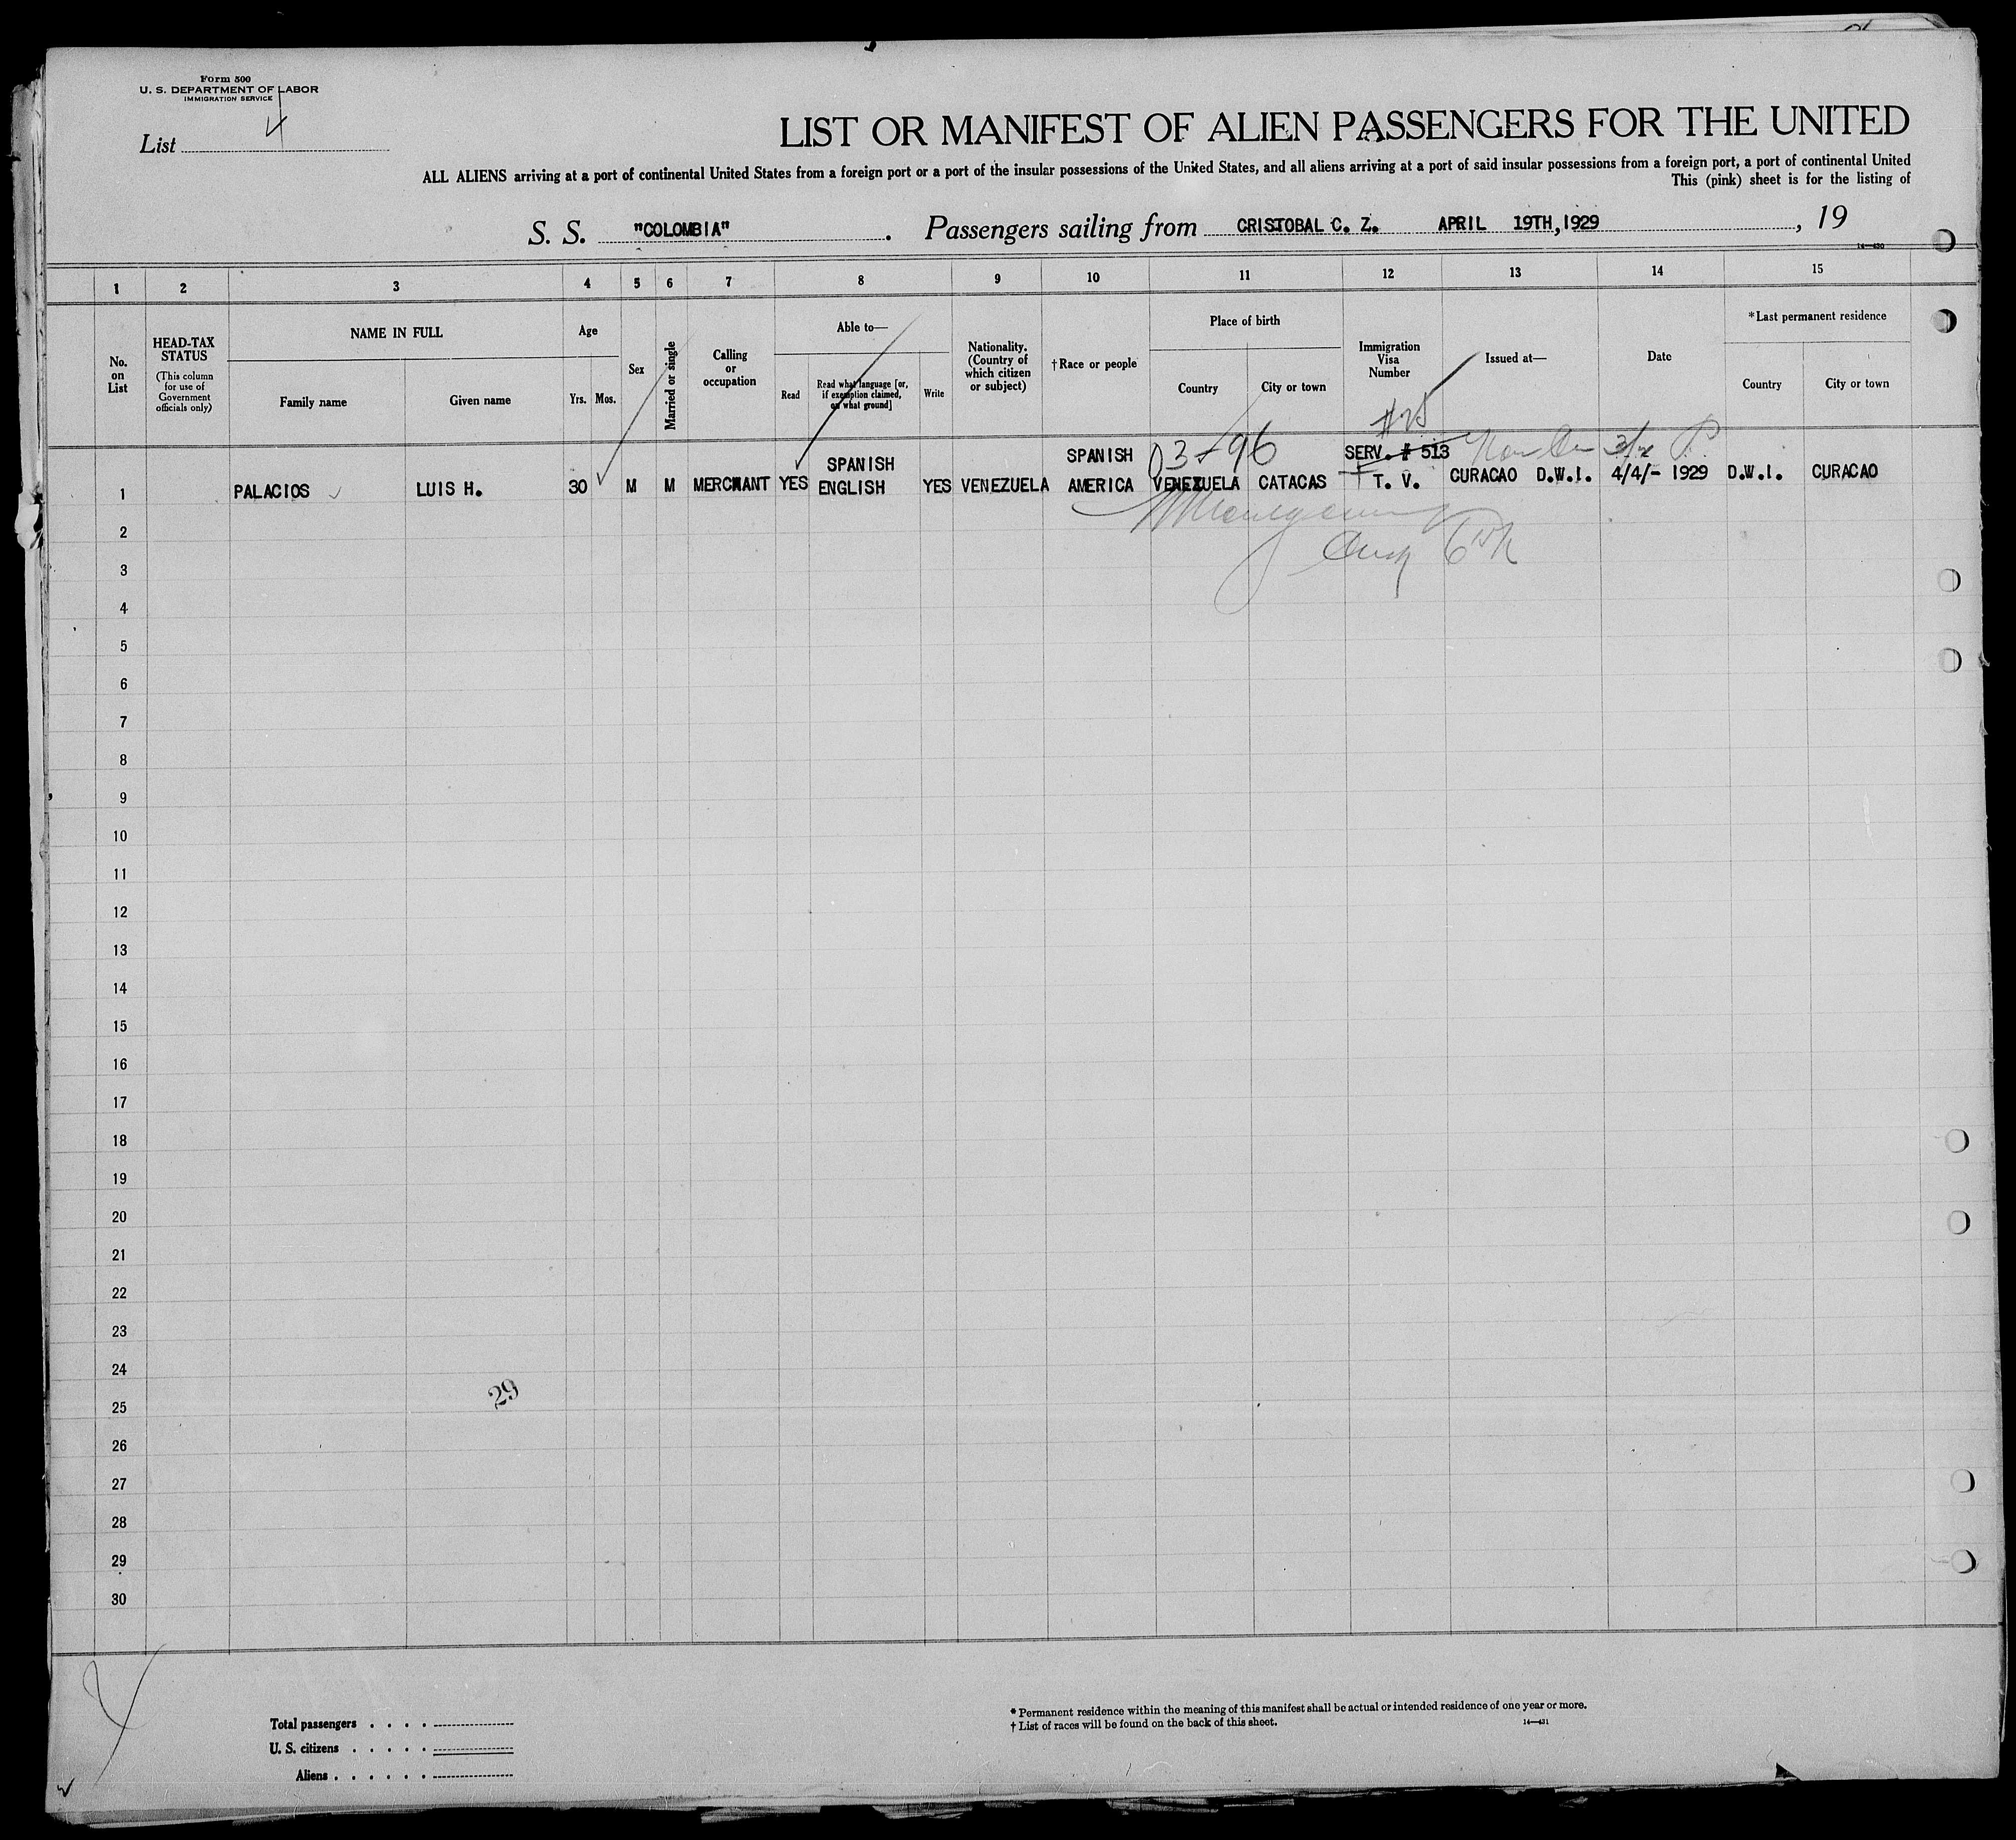 Form 500
U. S. DEPARTMENT OF LABOR
IMMIGRATION SERVICE
List 4
LIST OR MANIFEST OF ALIEN PASSENGERS FOR THE UNITED
ALL ALIENS arriving at a port of continental United States from a foreign port or a port of the insular possessions of the United States, and all aliens arriving at a port of said insular possessions from a foreign port, a port of continental United
This (pink) sheet is for the listing of
S. S. "COLOMBIA". Passengers sailing from CRISTOBAL C. Z. APRIL 19TH,1929, 19
14—430
1 2 3 4 5 6 7 8 9 10 11 12 13 14 15
No. on List
HEAD-TAX STATUS
(This column for use of Government officials only)
NAME IN FULL
Family name Given name
Age
Yrs. Mos.
Sex
Married or single
Calling or occupation
Able to—
Read
Read what language [or, if exemption claimed, on what ground]
Write
Nationality. (Country of which citizen or subject)
†Race or people
Place of birth
Country City or town
Immigration Visa Number
Issued at—
Date
*Last permanent residence
Country City or town
SPANISH SPANISH 3-96 SERV. # 513
1 PALACIOS LUIS H. 30 M M MERCHANT YES ENGLISH YES VENEZUELA AMERICA VENEZUELA CATACAS T. V. CURACAO D.W.I. 4/4/- 1929 D.W.I. CURACAO
2
3
4
5
6
7
8
9
10
11
12
13
14
15
16
17
18
19
20
21
22
23
24
29
25
26
27
28
29
30
* Permanent residence within the meaning of this manifest shall be actual or intended residence of one year or more.
† List of races will be found on the back of this sheet.
14—431
Total passengers . . . .
U. S. citizens . . . . .
Aliens . . . . . .